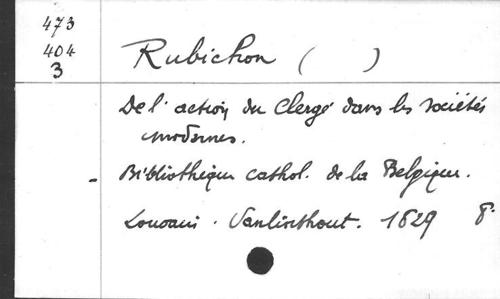 473
404
3
Rubichon ( )
De l'action du Clergé dans les sociétés
modernes.
- Bibliothèque cathol. de la Belgique.
Louvain. Vanlinthout. 1829 8°